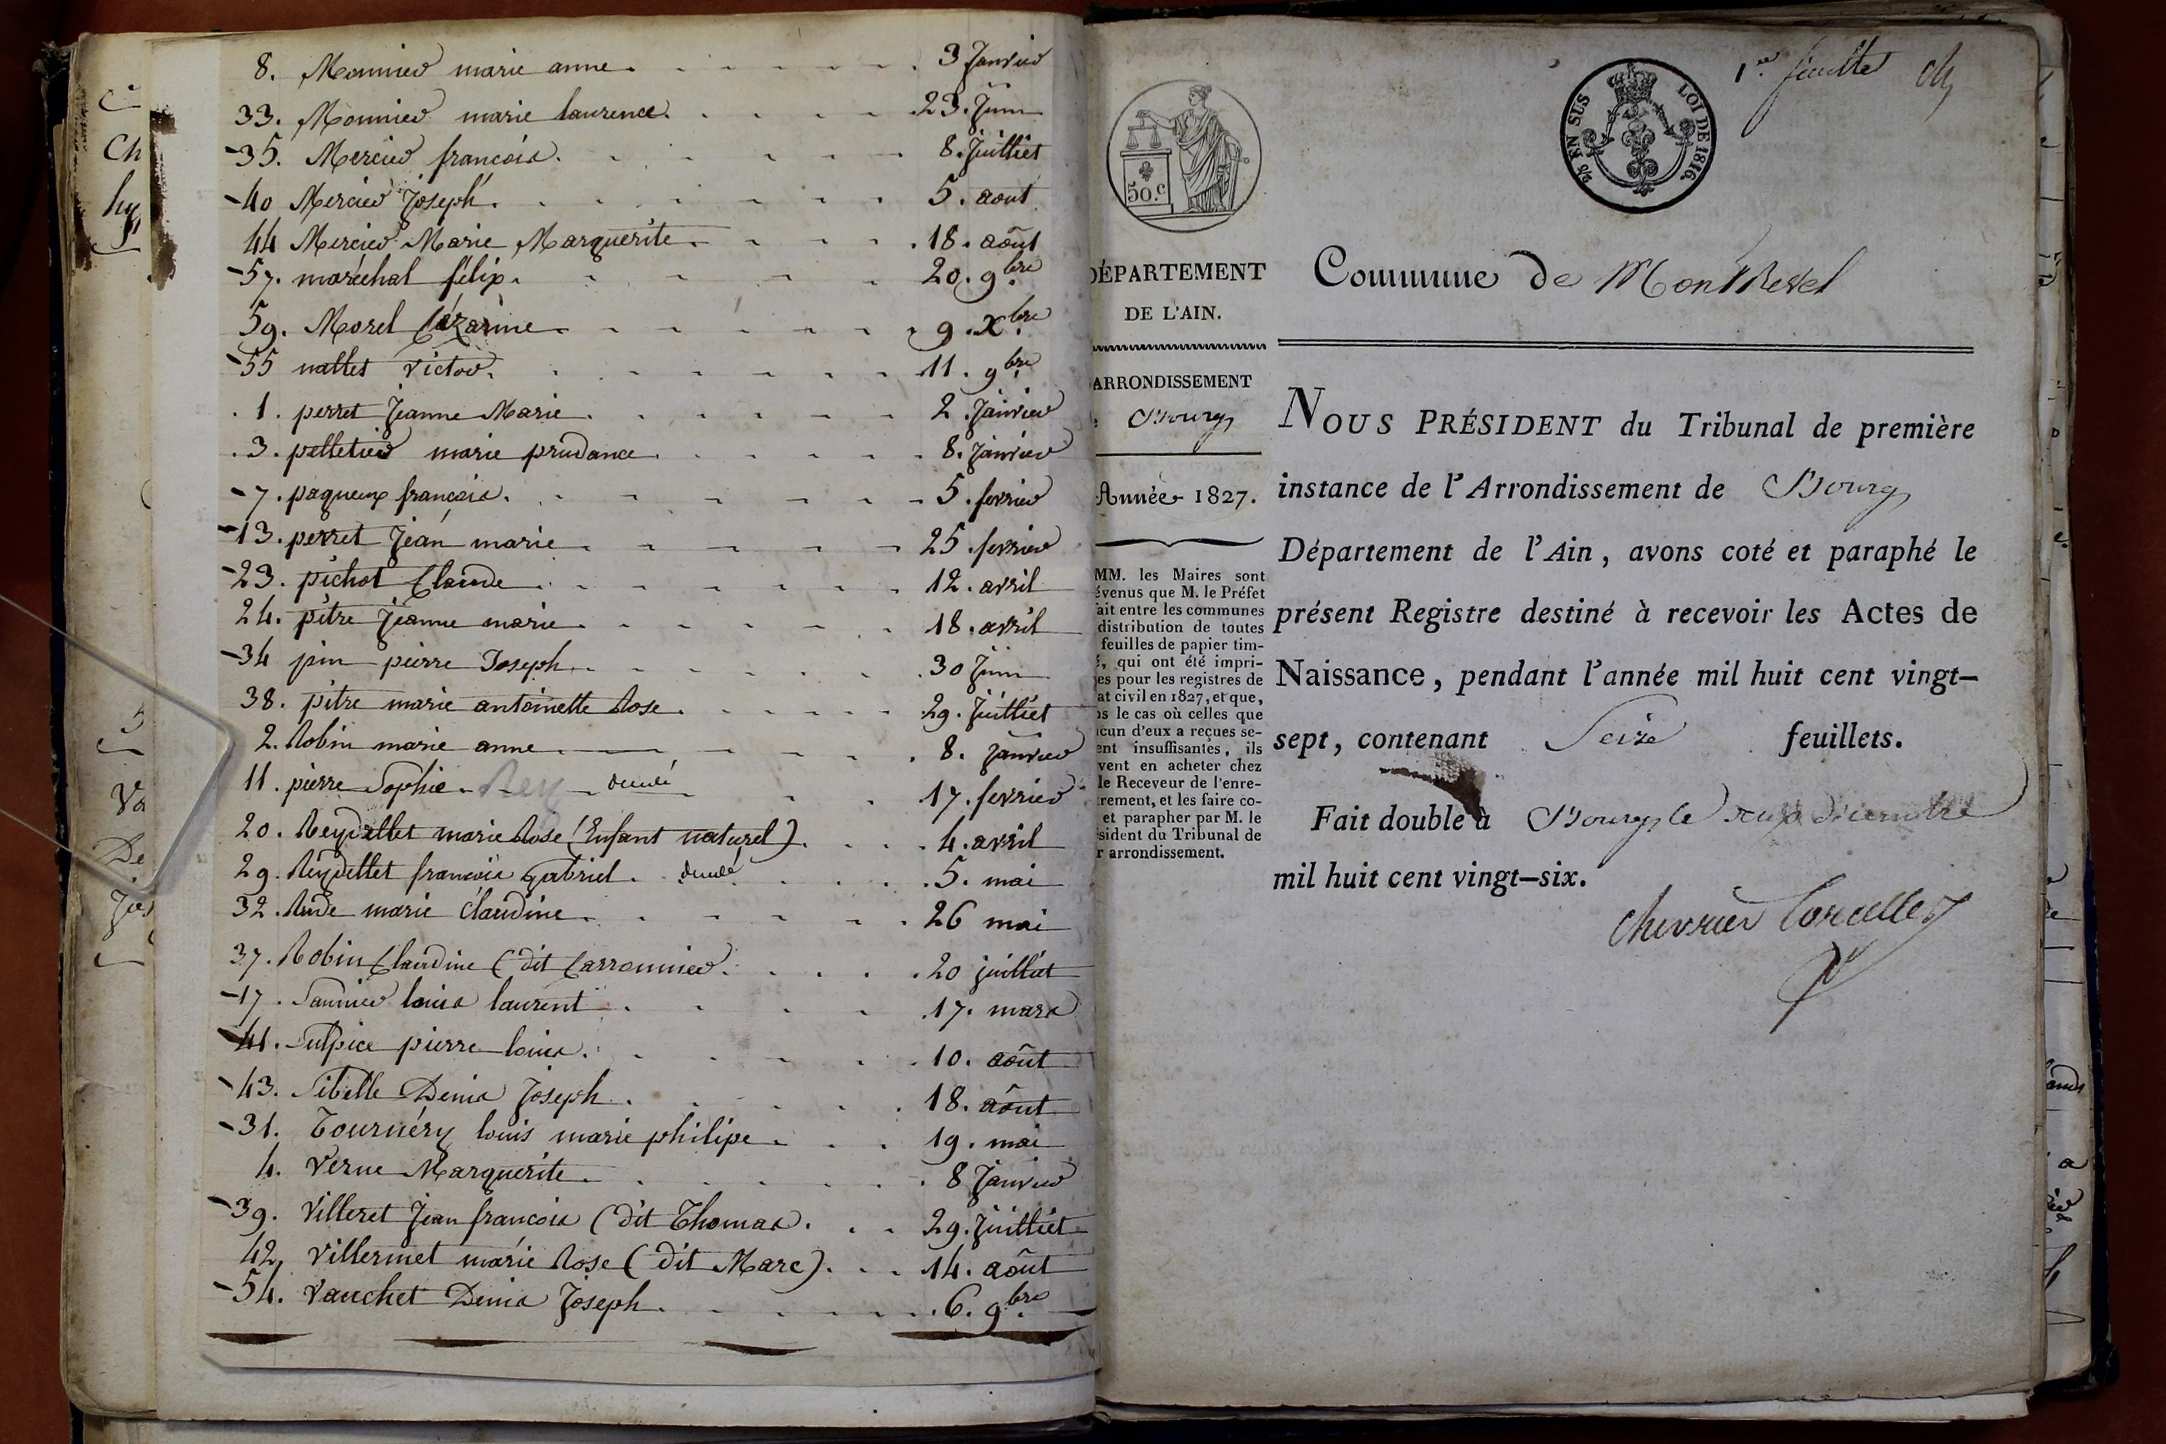 8. Monnier marie anne 3 Janvier
33. Monnier marie laurence 23. Juin
35. Mercier francois 8. Juilliet
40 Mercier Joseph 5. aout
44 Mercier Marie Marguerite 18. août
57. maréchal félix 20. 9bre
59. Morel Cézarine 9. Xbre
55 nallet victor 11. 9bre
1. perret Jeanne Marie 2. Janvier
3. pelletier marie prudance 8. Janvier
7. paqueux francois 5. fevrier
13. perret Jéan marie 25. fevrier
23. pichot Claude 12. avril
24. pitre Jeanne marie 18. avril
34 pin pierre Joseph 30 Juin
38. pitre marie antoinette Rose 29. Juilliet
2. Robin marie anne 8. Janvier
11. pierre Sophie Rey 17. fevrier
20. Reydellet marie Rose (Enfant naturel) 4. avril
29. Reydellet francois gabriel 5. mai
32. Rude marie Claudine 26 mai
37. Robin Claudine (dit Carronnier 20 juilliet
17. Saunier louis laurent 17. mars
41. Sulpice pierre louis 10. août
43. Sibelle Denis Joseph 18. août
31. Tournéry louis marie philipe 19. mai
4. Verne Marguerite 8 Janvier
39. Villeret Jean francois (dit Thomas 29. Juilliet
42, Villermet marie Rose (dit Marc) 14. août
54. Vauchet Denis Joseph 6. 9bre
1er feuillet
EN SUS LOI DE 1816.
50.c
DÉPARTEMENT
DE L'AIN.
ARRONDISSEMENT
Bourg
Année 1827.
MM. les Maires sont
évenus que M. le Préfet
ait entre les communes
distribution de toutes
feuilles de papier tim-
, qui ont été impri-
es pour les registres de
at civil en 1827, et que,
s le cas où celles que
cun d'eux a reçues se-
ent insuffisantes, ils
vent en acheter chez
le Receveur de l'enre-
rement, et les faire co-
et parapher par M. le
sident du Tribunal de
r arrondissement.
Commune de Montrevel
NOUS PRÉSIDENT du Tribunal de première
instance de l'Arrondissement de Bourg
Département de l'Ain, avons coté et paraphé le
présent Registre destiné à recevoir les Actes de
Naissance, pendant l'année mil huit cent vingt-
sept, contenant Seize feuillets.
Fait double à Bourg, le décembre
mil huit cent vingt-six.
Chevrier Corcelles